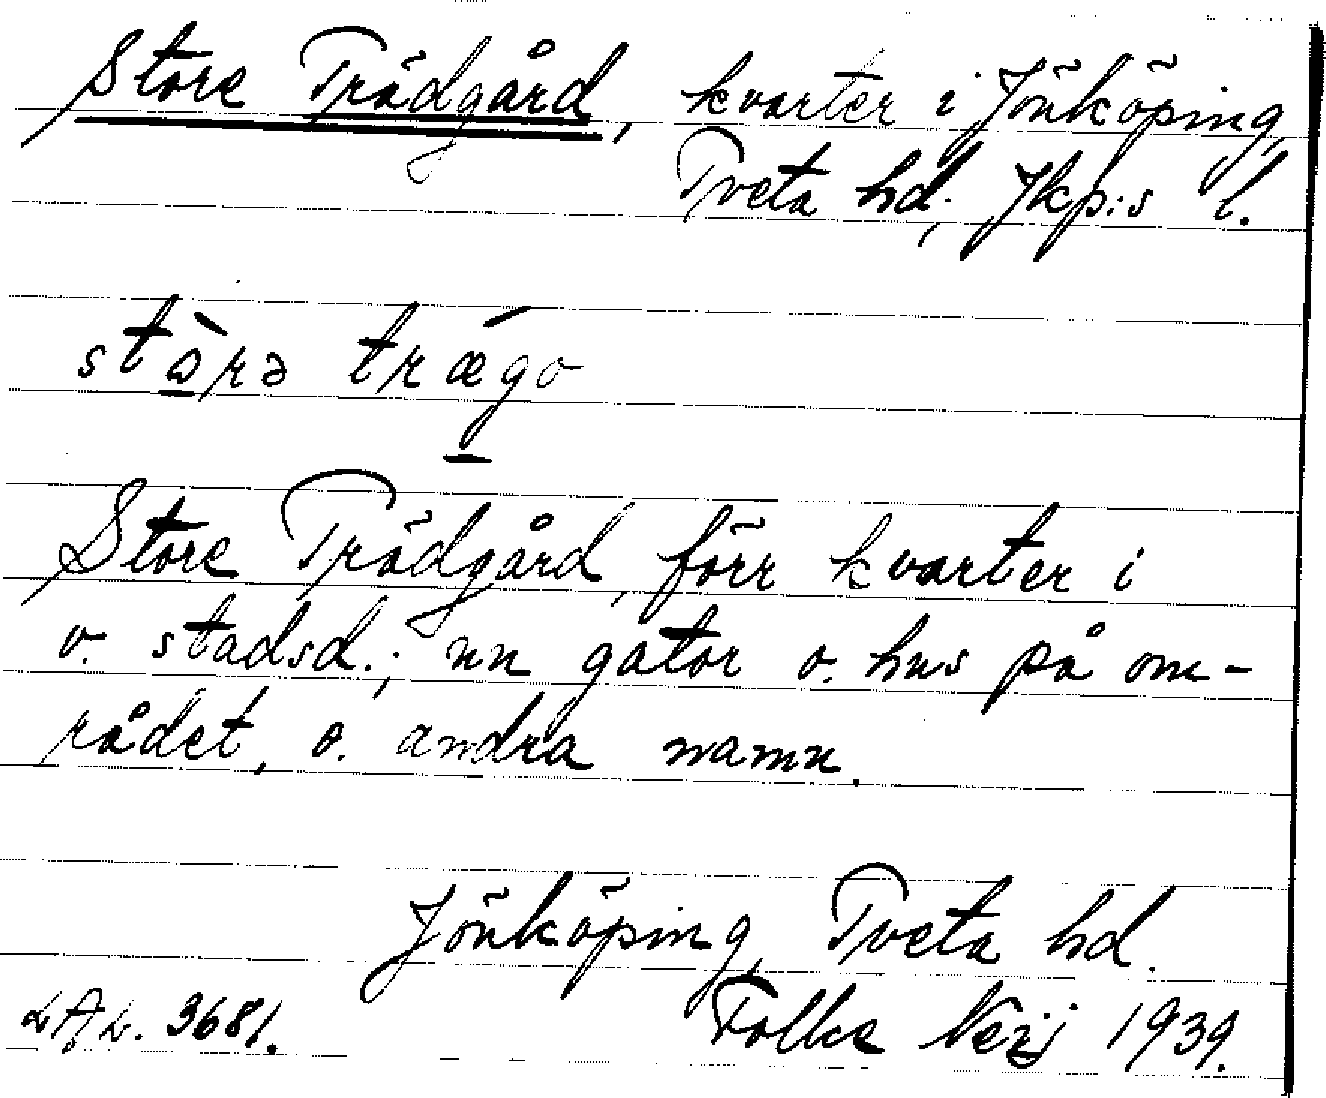 Store Trädgård, kvarter i Jönköping,
Tveta hd, Jkp:s l.
stòrə trǽgo
Store Trädgård, förr kvarter i
v. stadsd.; nu gator o. hus på om-
rådet, o. andra namn.
Jönköping, Tveta hd.
LAL. 3681. Folke Neij 1939.